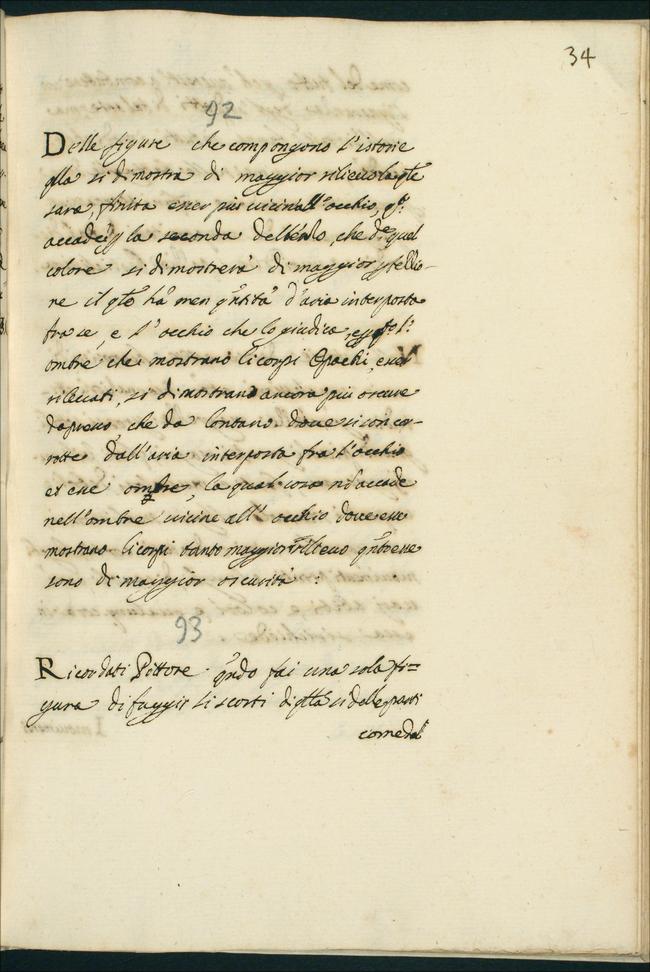 34
92
Delle figure che compongono l'istorie
qlla si dimostra di maggior rilieuo la qle
sara, finita esser piu uicina all'occhio, qsto
accade la seconda del che de quel
colore si dimostrera di maggior pfettio-
ne il qle ha men qntita d'aria interposta
fra se, e l'occhio che lo giudica, l'
ombre che mostrano li corpi Opachi, esser
rileuati, si dimostrano ancora piu oscure
dapresso che da lontano. doue si con cor-
rotte dall'aria interposta fra l'occhio
et esse ombre, la qual cosa nõ accade
nell'ombre uicine all' occhio doue esse
mostrano li corpi tanto maggior rilieuo qnto esse
sono di maggior oscurità :
93
Ricordati Pittore qndo fai una sola fi=
gura di fuggir li scorti di qlla si delle parti
come del